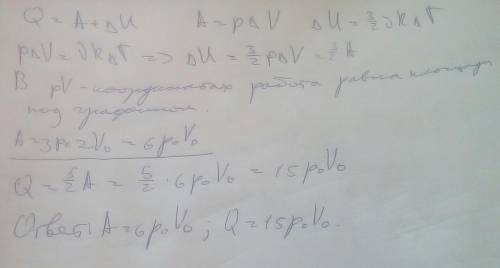 Q = A + ΔU   A = pΔV   ΔU = 3/2 νRΔT
pΔV = νRΔT => ΔU = 3/2 pΔV = 3/2 A
В pV-координатах работа равна площади
под графиком.
A = 3p₀2V₀ = 6p₀V₀
Q = 5/2 A = 5/2 · 6p₀V₀ = 15p₀V₀
Ответ: A = 6p₀V₀; Q = 15p₀V₀.